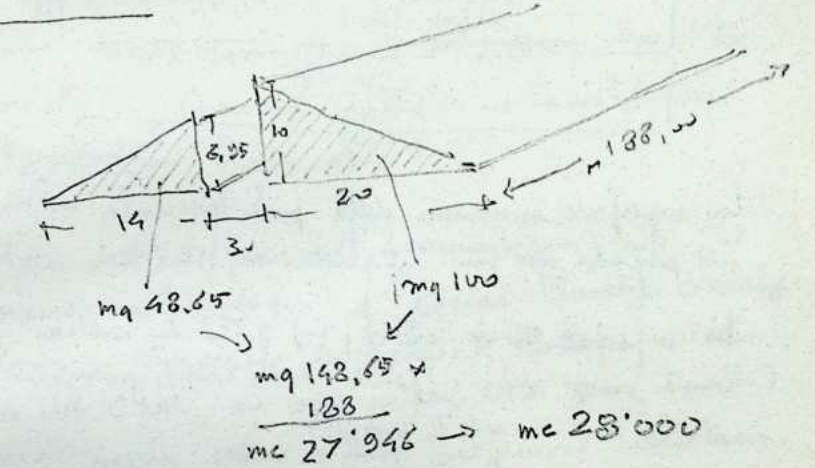 10
6,95
m 188,00
20
14
3.
mq 48.65
mq 100
mq 148,65 ×
188
mc 27'946 → mc 28'000